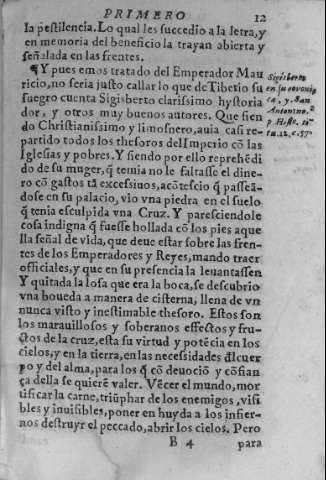 PRIMERO 12
la pestilencia. Lo qual les succedio a la letra, y
en memoria del beneficio la trayan abierta y
señalada en las frentes.
¶ Y pues emos tratado del Emperador Mau
ricio, no seria justo callar lo que de Tibetio su
suegro cuenta Sigisberto clarissimo hystoria
dor, y otros muy buenos autores. Que sien
do Christianissimo y limosnero, auia casi re-
partido todos los thesoros del Imperio cõ las
Iglesias y pobres. Y siendo por ello reprehẽdi
do de su muger, q̃ temia no le faltasse el dine-
ro cõ gastos tã excessiuos, acõtescio q̃ passeã-
dose en su palacio, vio vna piedra en el suelo
q̃ tenia esculpida vna Cruz. Y paresciendole
cosa indigna q̃ fuesse hollada cõ los pies aque
lla señal de vida, que deue estar sobre las fren-
tes de los Emperadores y Reyes, mando traer
officiales, y que en su presencia la leuantassen
Y quitada la losa que era la boca, se descubrio
vna boueda a manera de cisterna, llena de vn
nunca visto y inestimable thesoro. Estos son
los marauillosos y soberanos effectos y fru-
ctos de la cruz, esta su virtud y potẽcia en los
cielos, y en la tierra, en las necessidades đl cuer
po y del alma, para los q̃ cõ deuociõ y cõfian
ça della se quierẽ valer. Vẽcer el mundo, mor
tificar la carne, triũphar de los enemigos, visi
bles y inuisibles, poner en huyda a los infier-
nos destruyr el peccado, abrir los cielos. Pero
B 4 para
Sigisberto
en su
ca, y San
Antonino. 2.
p. Histo.
tu. 12. c.